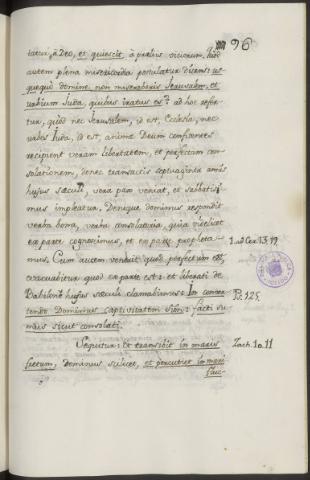 96
tatur, à Deo, et quiescit, à praelijs viciorum, quod
autem plena misericordia postulatur dicens: us
quequo domine non misereberis Jerusalem, et
urbium Juda, quibus iratus es? ad hoc refer
tur, quod nec Jerusalem, id est, Ecclesia, nec
urbes Juda, id est, animae Deum confitentes
recipient veram libertatem, et perfectam con
solationem, donec transactis septuaginta annis
hujus saeculi, vera pax veniat, et sabbatis
mus impleatur. Denique dominus respondit
verba bona, verba consolatoria, quia videlicet
ex parte cognoscimus, et ex parte propheta-
mus. Cum autem venerit quod perfectum est,
evacuabitur quod ex parte est: et liberati de
Babilone hujus saeculi clamabimus: In conver
tendo Dominus captivitatem Sion: facti su
mus sicut consolati.
Sequitur: et transibit in maris
fretum, dominus scilicet, et percutiet in mari
fluc-
1. ad Cor. 13. 9.
Ps. 125.
Zach. 10. 11